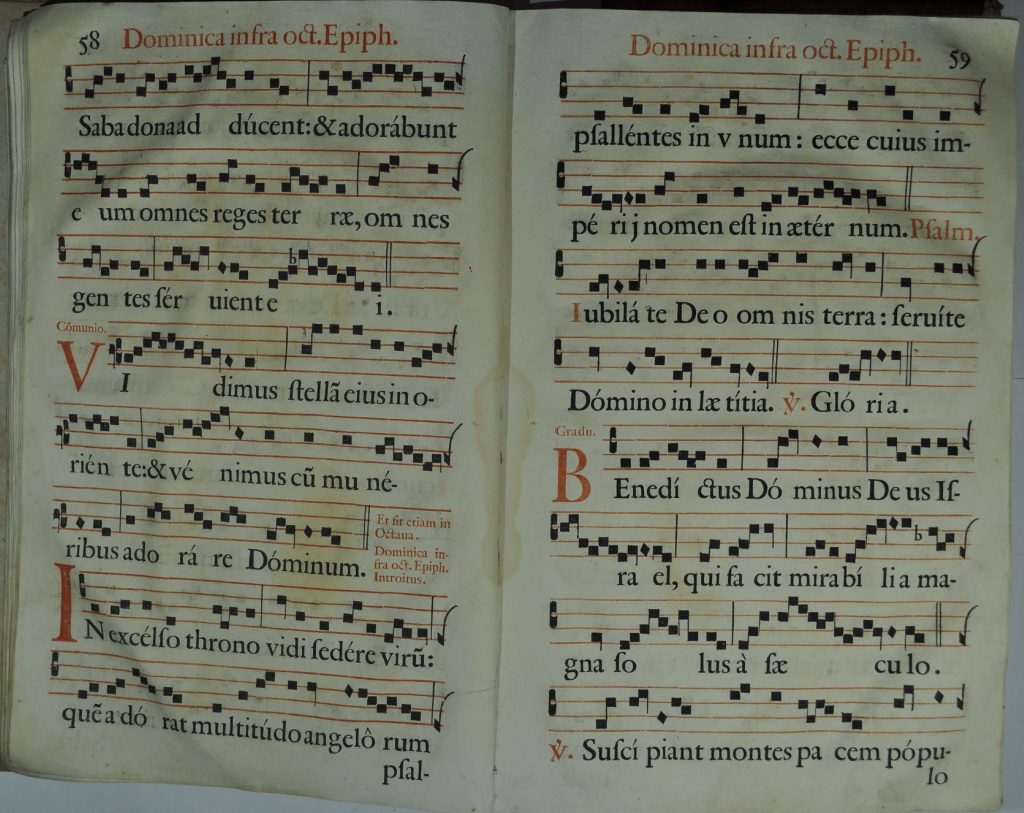 58 Dominica infra oct. Epiph.
Saba donaad dúcent: & adorábunt
e um omnes reges ter ræ, om nes
gen tes ſér uient e i.
Cómunio.
VI dimus ſtellã eius in o-
rién te: & vé nimus cũ mu né-
ribus ado rá re Dóminum.
Et ſic etiam in
Octaua.
Dominica in-
fra oct. Epiph.
Introitus.
IN excélſo throno vidi ſedére virũ:
quẽ a dó rat multitúdo angelô rum
pſal-
Dominica infra oct. Epiph. 59
pſalléntes in v num: ecce cuius im-
pé ri j nomen eſt in ætér num. Pſalm.
Iubilá te De o om nis terra: ſeruíte
Dómino in læ títia. ℣. Gló ri a.
Gradu.
BEnedí ctus Dó minus De us Iſ-
ra el, qui fa cit mirabí li a ma-
gna ſo lus à ſæ cu lo.
℣. Suſcí piant montes pa cem pópu-
lo